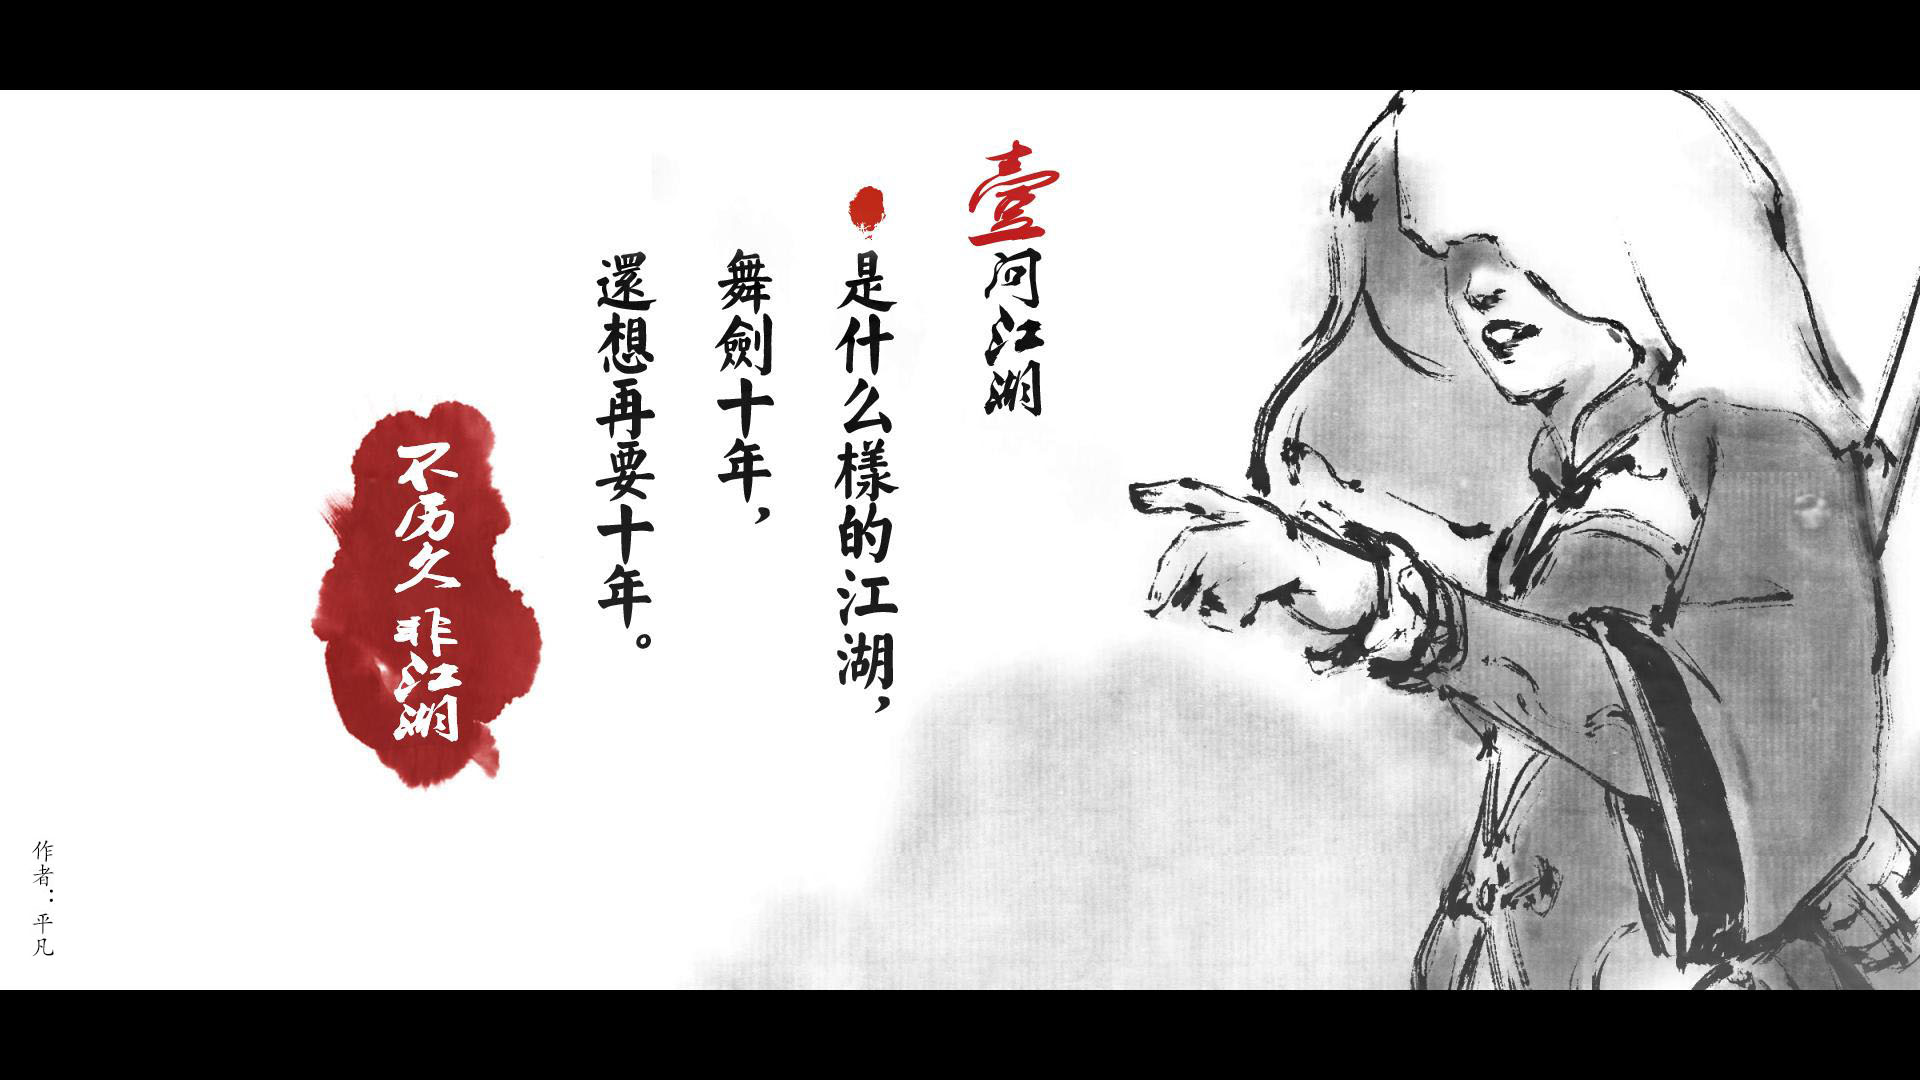 壹问江湖
是什么樣的江湖，
舞劍十年，
還想再要十年。
不历久 非江湖
作者：平凡